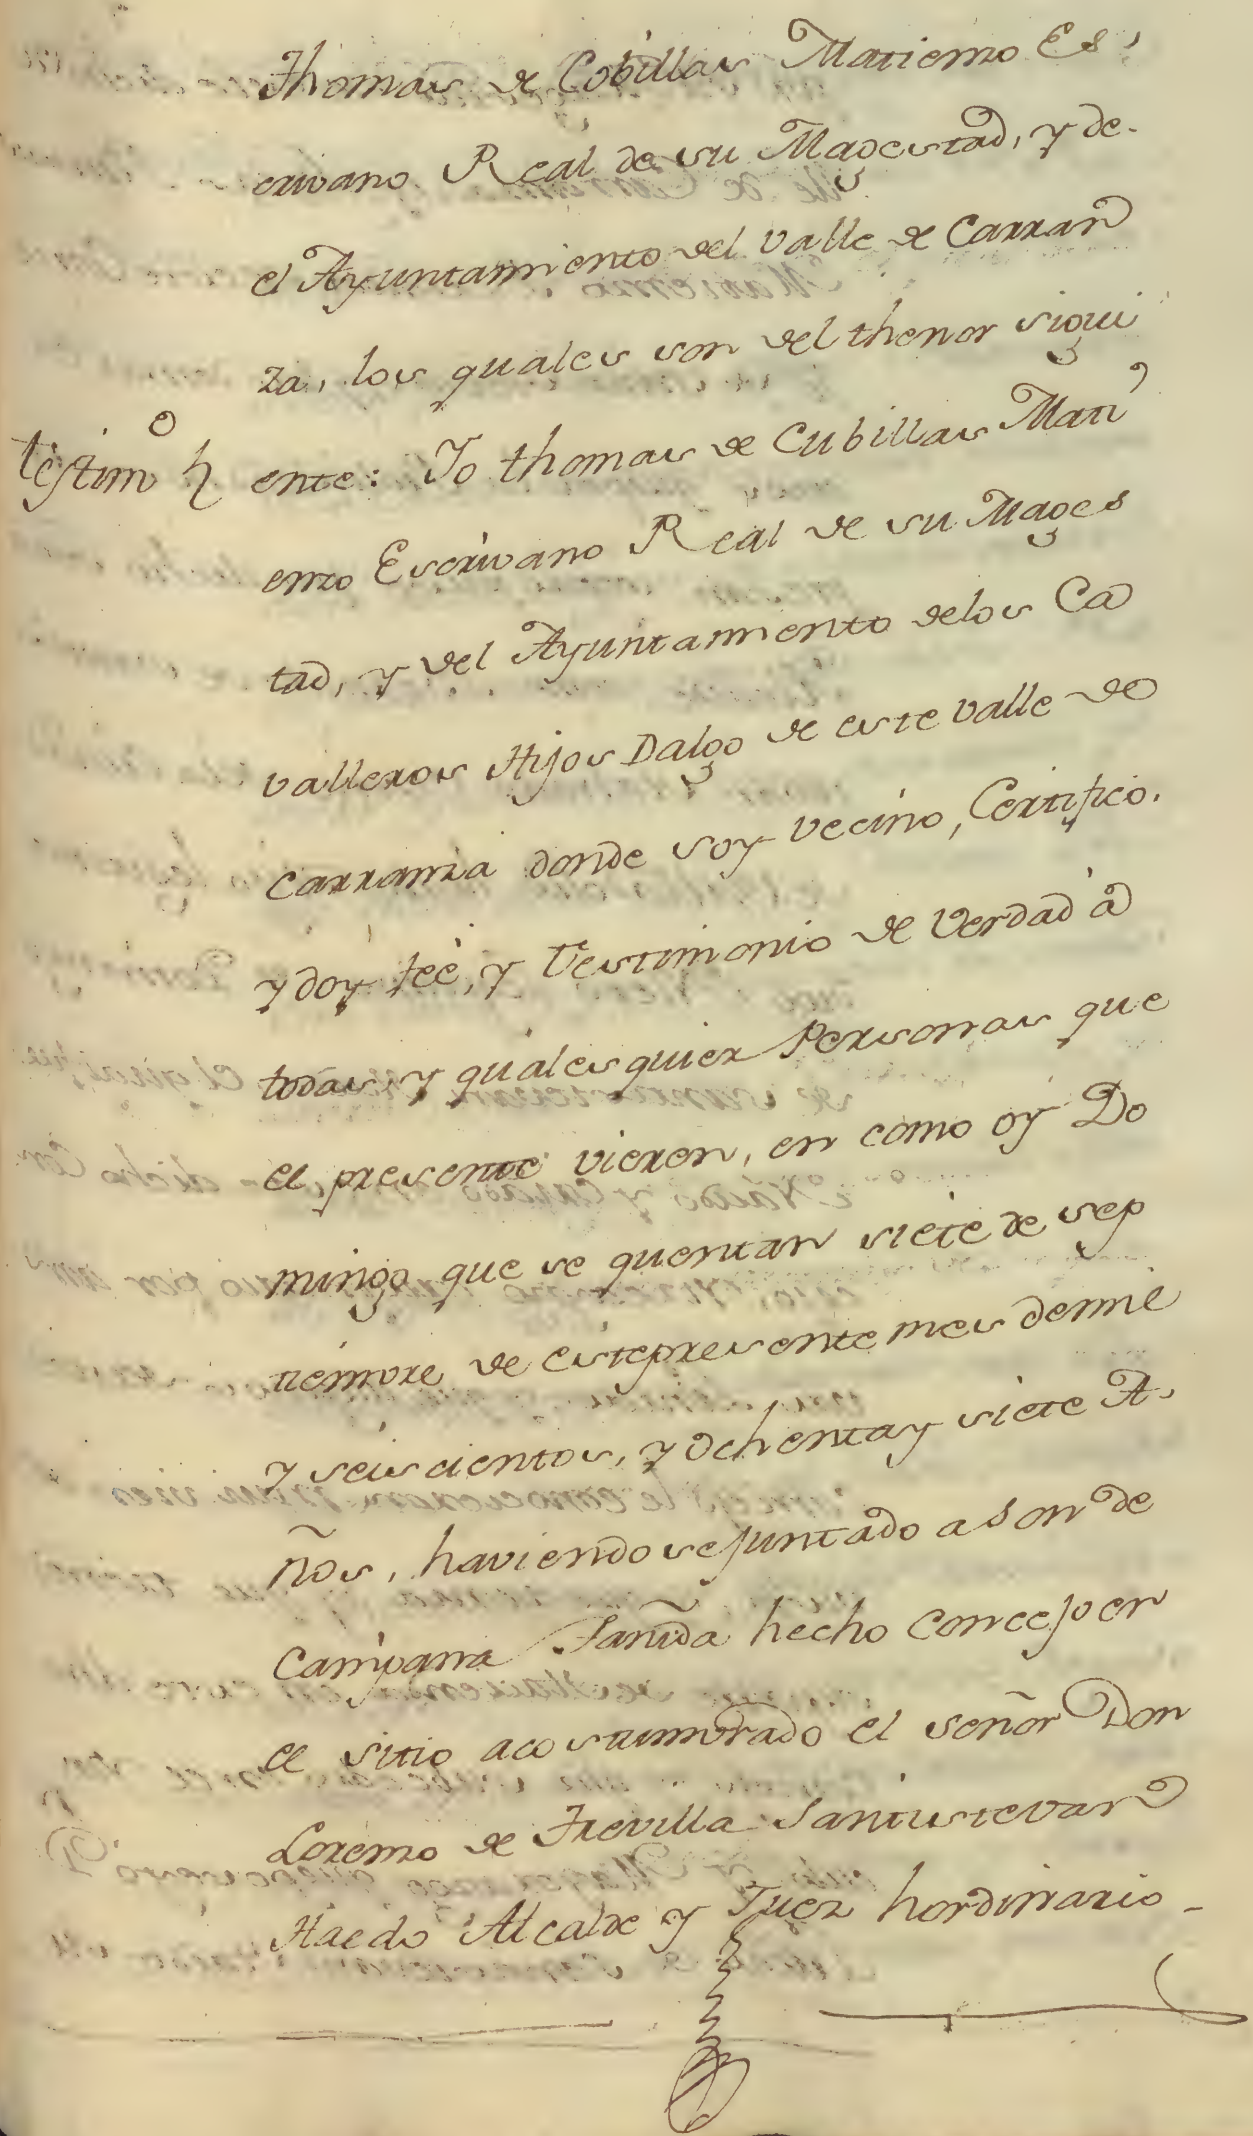 Thomas de Cobillas Matienzo Es,
crivano Real de su Magestad, y de.
el Ayuntamiento del valle de Carran
za, los quales son del thenor sigui
testim.º ente: Yo thomas de Cubillas Mati
enzo Escrivano Real de su Mages
tad, y del Ayuntamiento delos Ca
valleros Hijos Dalgo de este valle de
Carranza donde soy vecino, Certifico.
y doy feè, y testimonio de verdad à
todas, y qualesquier Personas que
el presente vieren, en como oy Do
mingo que se quentan siete de sep
tiembre de este presente mes de mil
y seiscientos, y ochenta y siete A.
ños, haviendose juntado a son de
Campana tañida hecho Concejo en
el sitio acostumbrado el señor Don
Lorenzo de Trevilla Santistevan
Haedo Alcalde y Juez hordinario